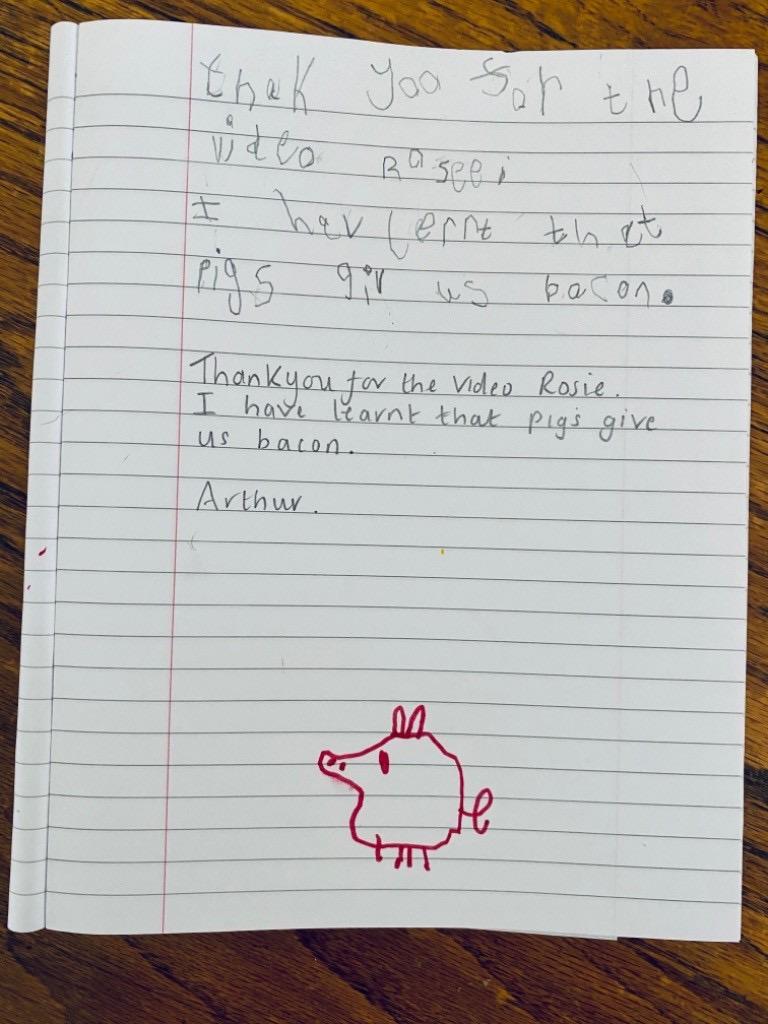 thak yoo for the
video Raseei
I hav lernt that
pigs giv us bacon.
Thankyou for the video Rosie.
I have learnt that pigs give
us bacon.
Arthur.